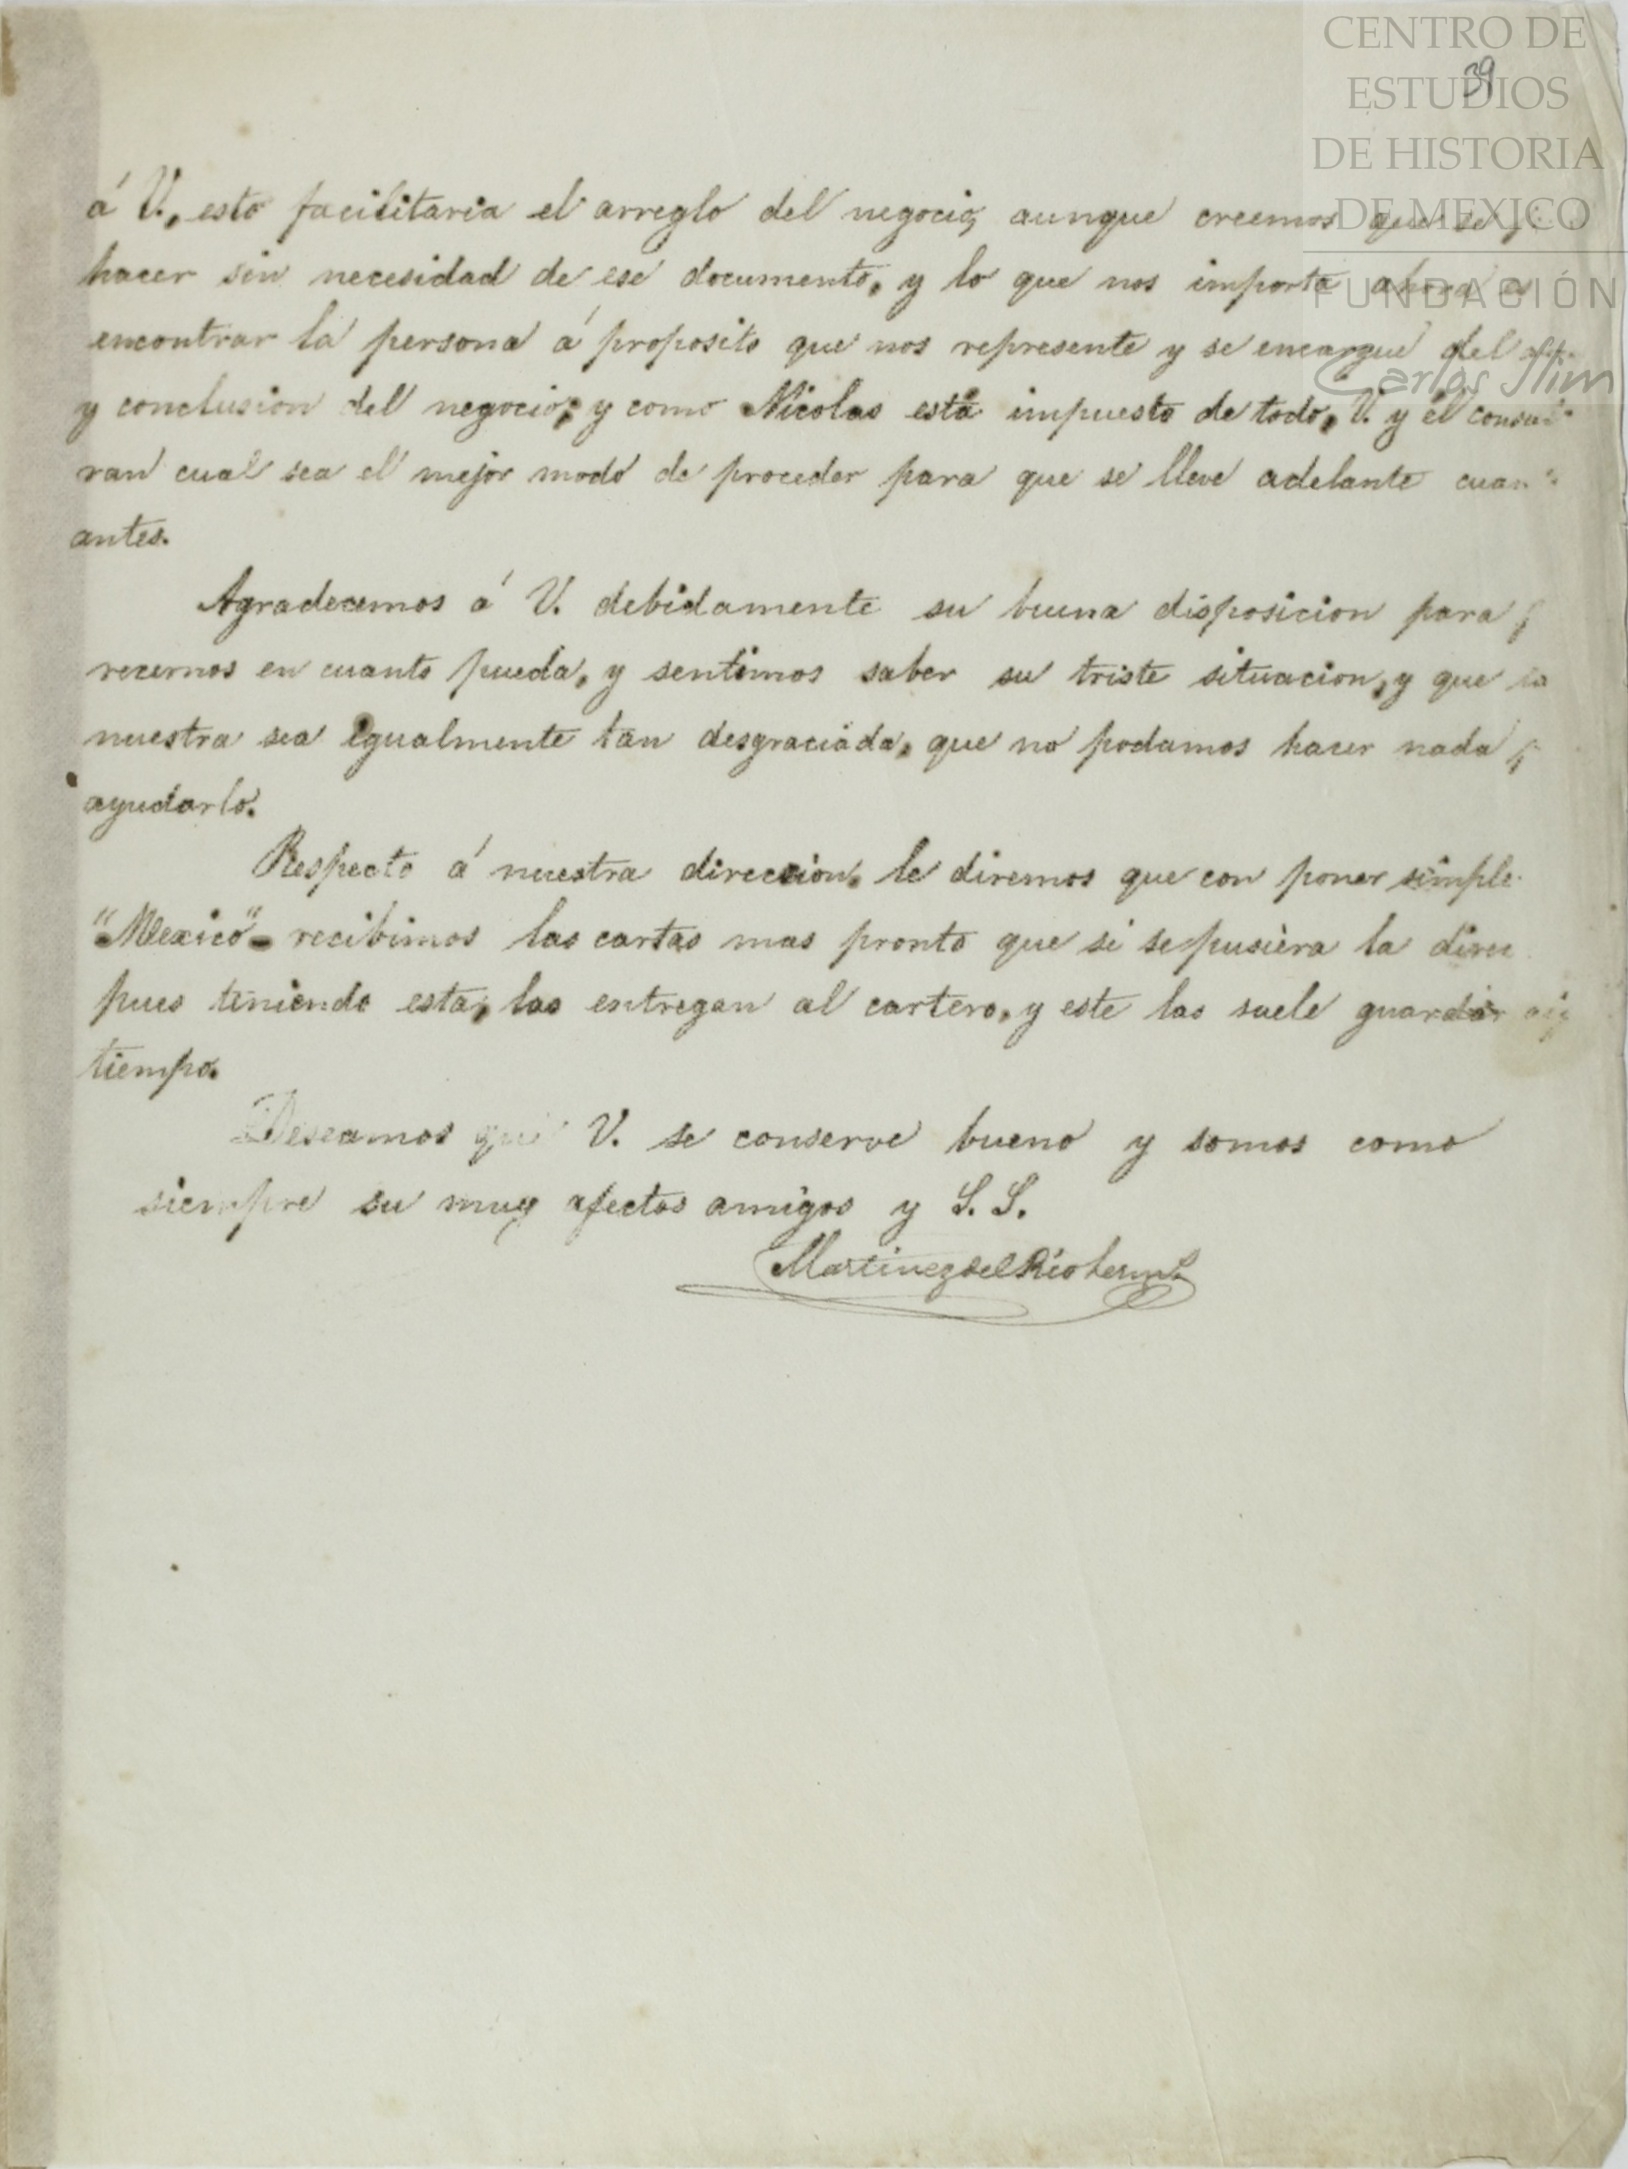 CENTRO DE
39
ESTUDIOS
DE HISTORIA
DE MEXICO
FUNDACIÓN
Carlos Slim
á V., esto facilitaria el arreglo del negocio, aunque creemos que se
hacer sin necesidad de ese documento, y lo que nos importa ahora es
encontrar la persona á proposito que nos represente y se encargue del
y conclusion del negocio; y como Nicolas está impuesto de todo, V. y él
ran cual sea el mejor modo de proceder para que se lleve adelante
antes.
Agradecemos á V. debidamente su buena disposicion para
recernos en cuanto pueda, y sentimos saber su triste situacion, y que la
nuestra sea igualmente tan desgraciada, que no podamos hacer nada
ayudarlo.
Respecto á nuestra direccion, le diremos que con poner simple
"Mexico" recibimos las cartas mas pronto que si se pusiera la direc
pues teniendo esta, las entregan al cartero, y este las suele guardar
tiempo.
Deseamos que V. se conserve bueno y somos como
siempre su muy afectos amigos y S. S.
Martinez del Rio herms.